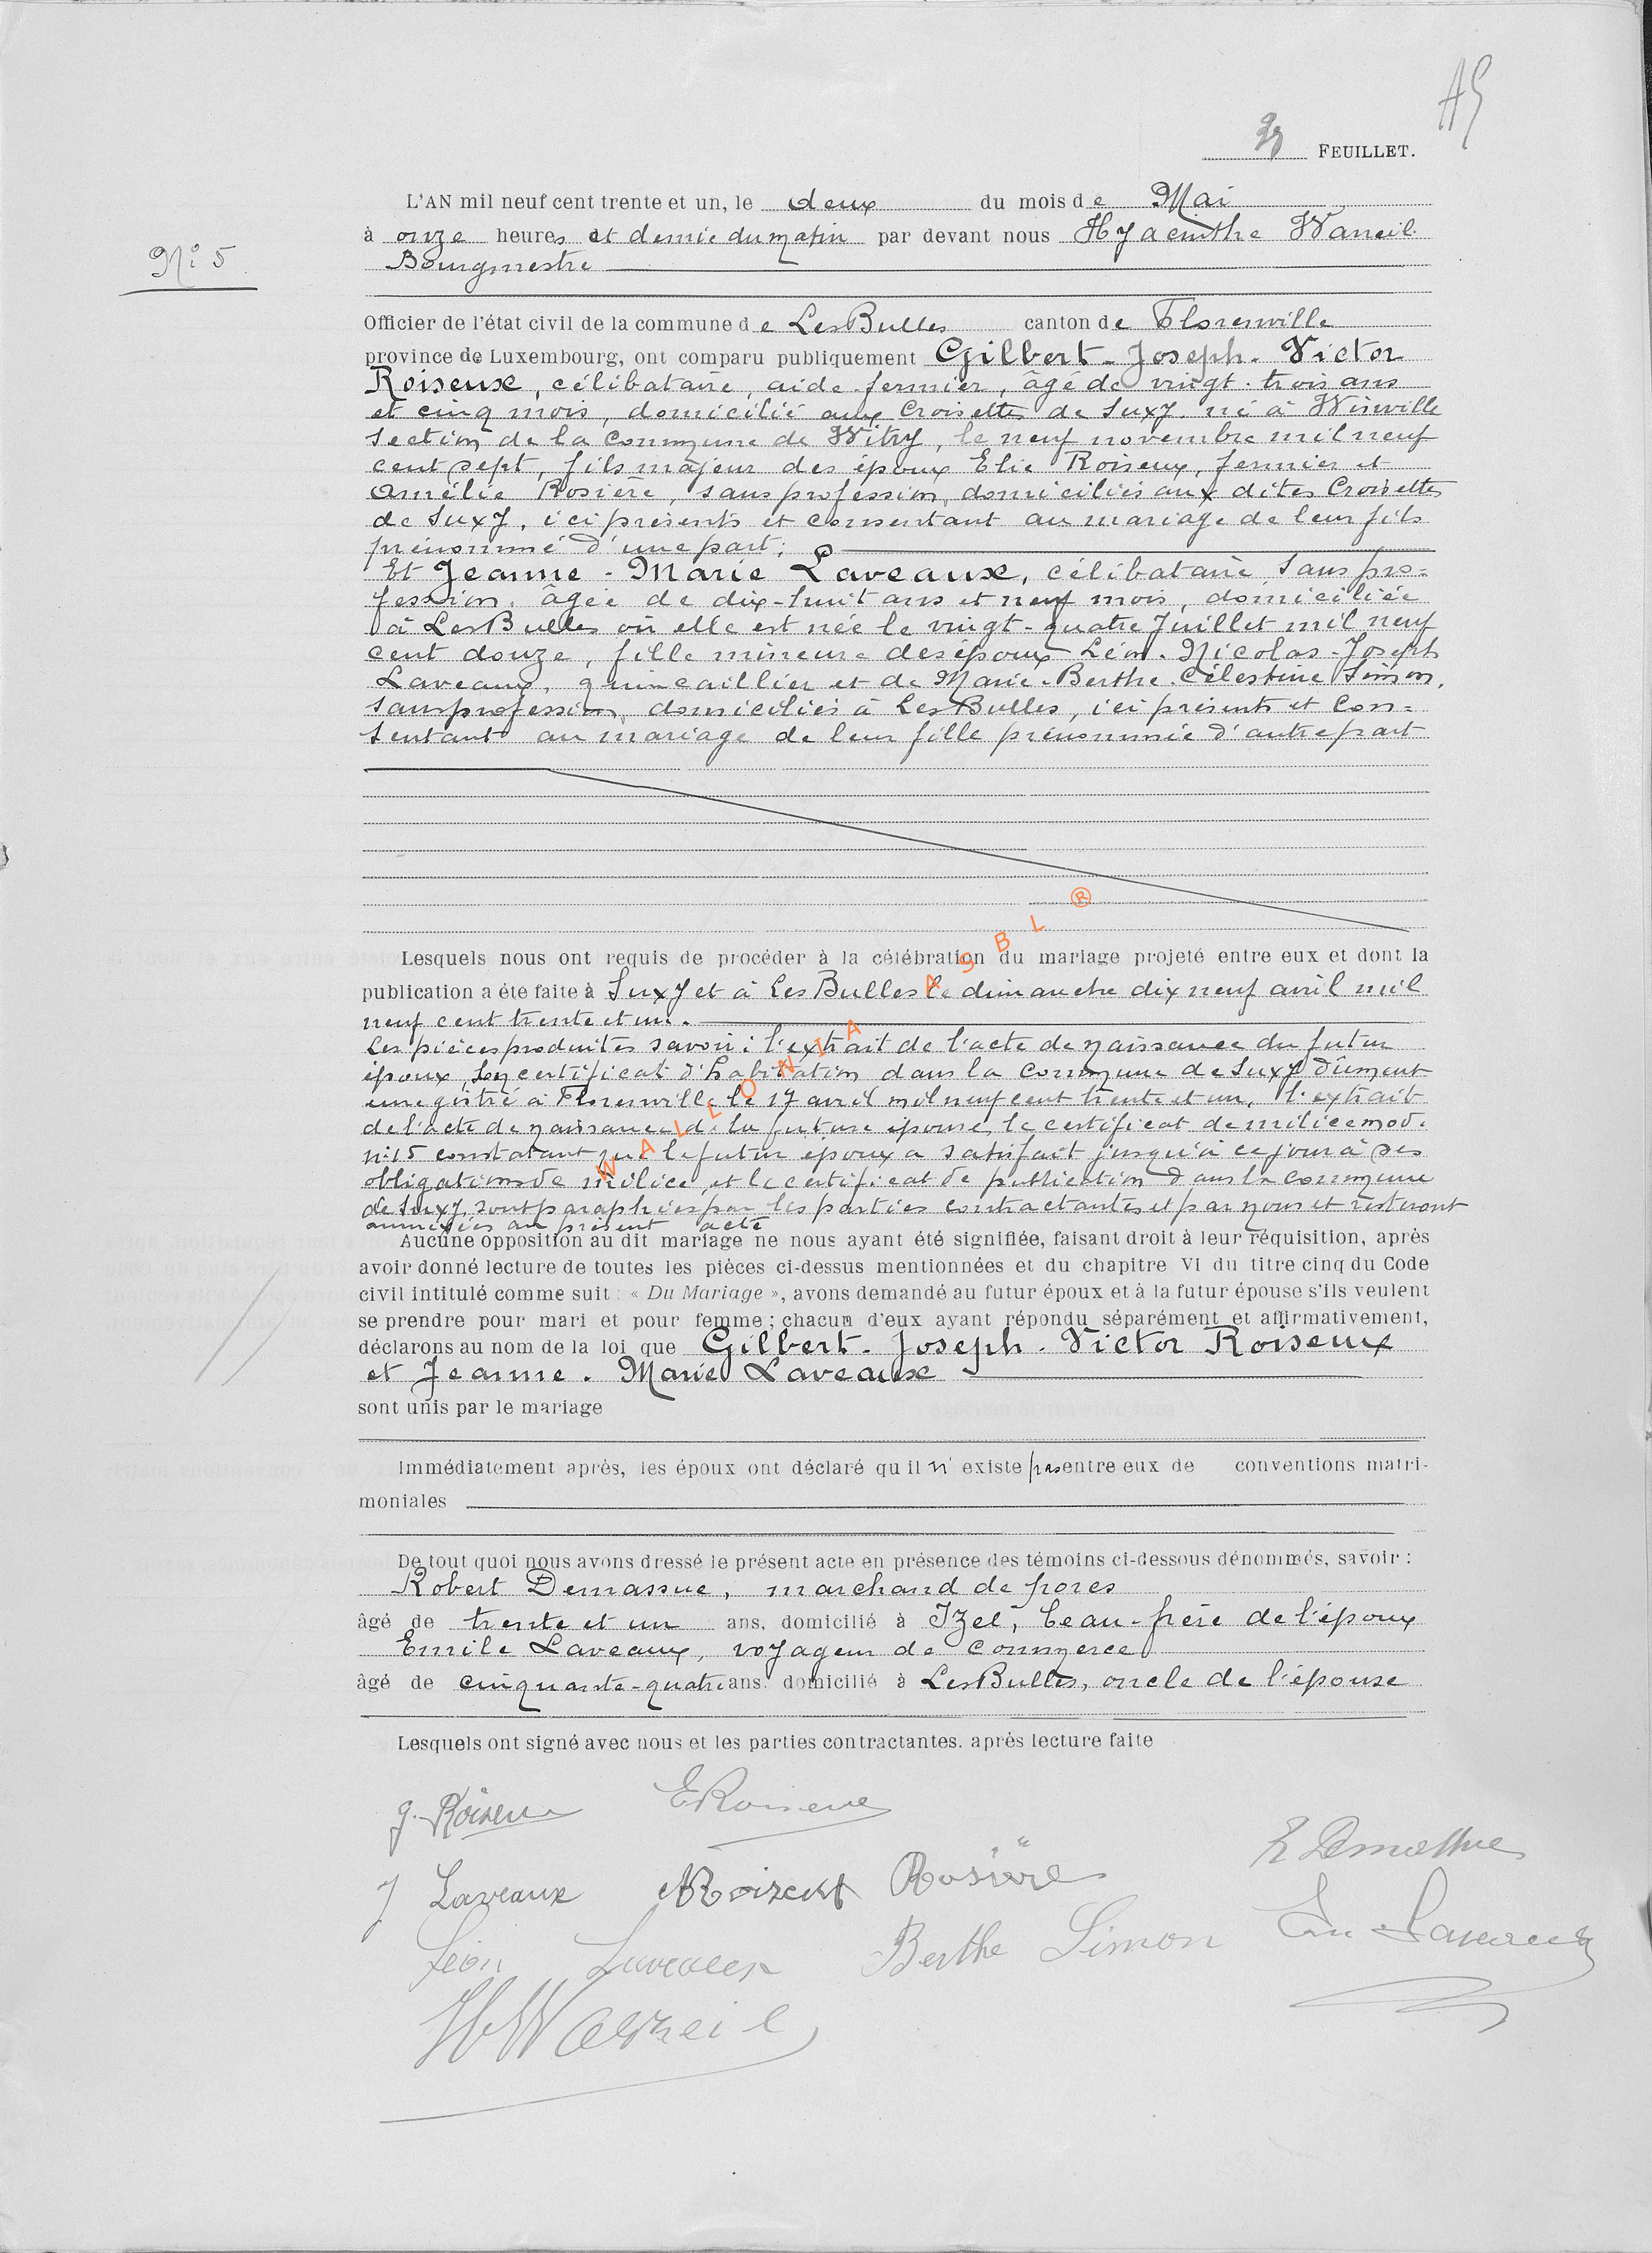 A5
FEUILLET.
L'AN mil neuf cent trente et un, le deux du mois de Mai
à onze heures et demie du matin par devant nous Hyacinthe Warzeil
N° 5
Bourgmestre
Officier de l'état civil de la commune de Les Bulles canton de Florenville
province de Luxembourg, ont comparu publiquement Gilbert-Joseph-Victor
Roiseux, célibataire, aide-fermier, âgé de vingt-trois ans
et cinq mois, domicilié aux Croisettes de Suxy, né à Winville
section de la Commune de Witry, le neuf novembre mil neuf
cent sept, fils majeur des époux Elie Roiseux, fermier et
Amélie Rosière, sans profession, domiciliés aux dites Croisettes
de Suxy, ici présents et consentant au mariage de leur fils
prénommé d'une part;
Et Jeanne-Marie Laveaux, célibataire, sans pro=
fession, âgée de dix-huit ans et neuf mois, domiciliée
à Les Bulles où elle est née le vingt-quatre Juillet mil neuf
cent douze, fille mineure des époux Léon-Nicolas-Joseph
Laveaux, quincaillier et de Marie-Berthe-Célestine Simon,
sans profession, domiciliés à Les Bulles, ici présents et con=
sentant au mariage de leur fille prénommée d'autre part
Lesquels nous ont requis de procéder à la célébration du mariage projeté entre eux et dont la
publication a été faite à Suxy et à Les Bulles le dimanche dix neuf avril mil
neuf cent trente et un.
Les pièces produites savoir: l'extrait de l'acte de naissance du futur
époux, son certificat d'habitation dans la Commune de Suxy dûment
enregistré à Florenville le 17 avril mil neuf cent trente et un, l'extrait
de l'acte de naissance de la future épouse, le certificat de milice mod.
n° 15 constatant que le futur époux a satisfait jusqu'à ce jour à ses
obligations de milice, et le certificat de publication dans la commune
de Suxy, sont paraphées par les parties contractantes et par nous et resteront
annexées au présent acte
Aucune opposition au dit mariage ne nous ayant été signifiée, faisant droit à leur réquisition, après
avoir donné lecture de toutes les pièces ci-dessus mentionnées et du chapitre VI du titre cinq du Code
civil intitulé comme suit : « Du Mariage », avons demandé au futur époux et à la futur épouse s'ils veulent
se prendre pour mari et pour femme ; chacun d'eux ayant répondu séparément et affirmativement,
déclarons au nom de la loi que Gilbert-Joseph-Victor Roiseux
et Jeanne-Marie Laveaux
sont unis par le mariage
Immédiatement après, les époux ont déclaré qu'il n'existe pas entre eux de conventions matri-
moniales
De tout quoi nous avons dressé le présent acte en présence des témoins ci-dessous dénommés, savoir :
Robert Demassue, marchand de porcs
âgé de trente et un ans, domicilié à Izel, beau-frère de l'époux
Emile Laveaux, voyageur de commerce
âgé de cinquante-quatre ans. domicilié à Les Bulles, oncle de l'épouse
Lesquels ont signé avec nous et les parties contractantes. après lecture faite
g. Roiseux E Roiseux
R Demassue
J Laveaux A Roiseux Rosière
Léon Laveaux Berthe Simon Em Laveaux
H Warzeil
WALLONIA ASBL ®